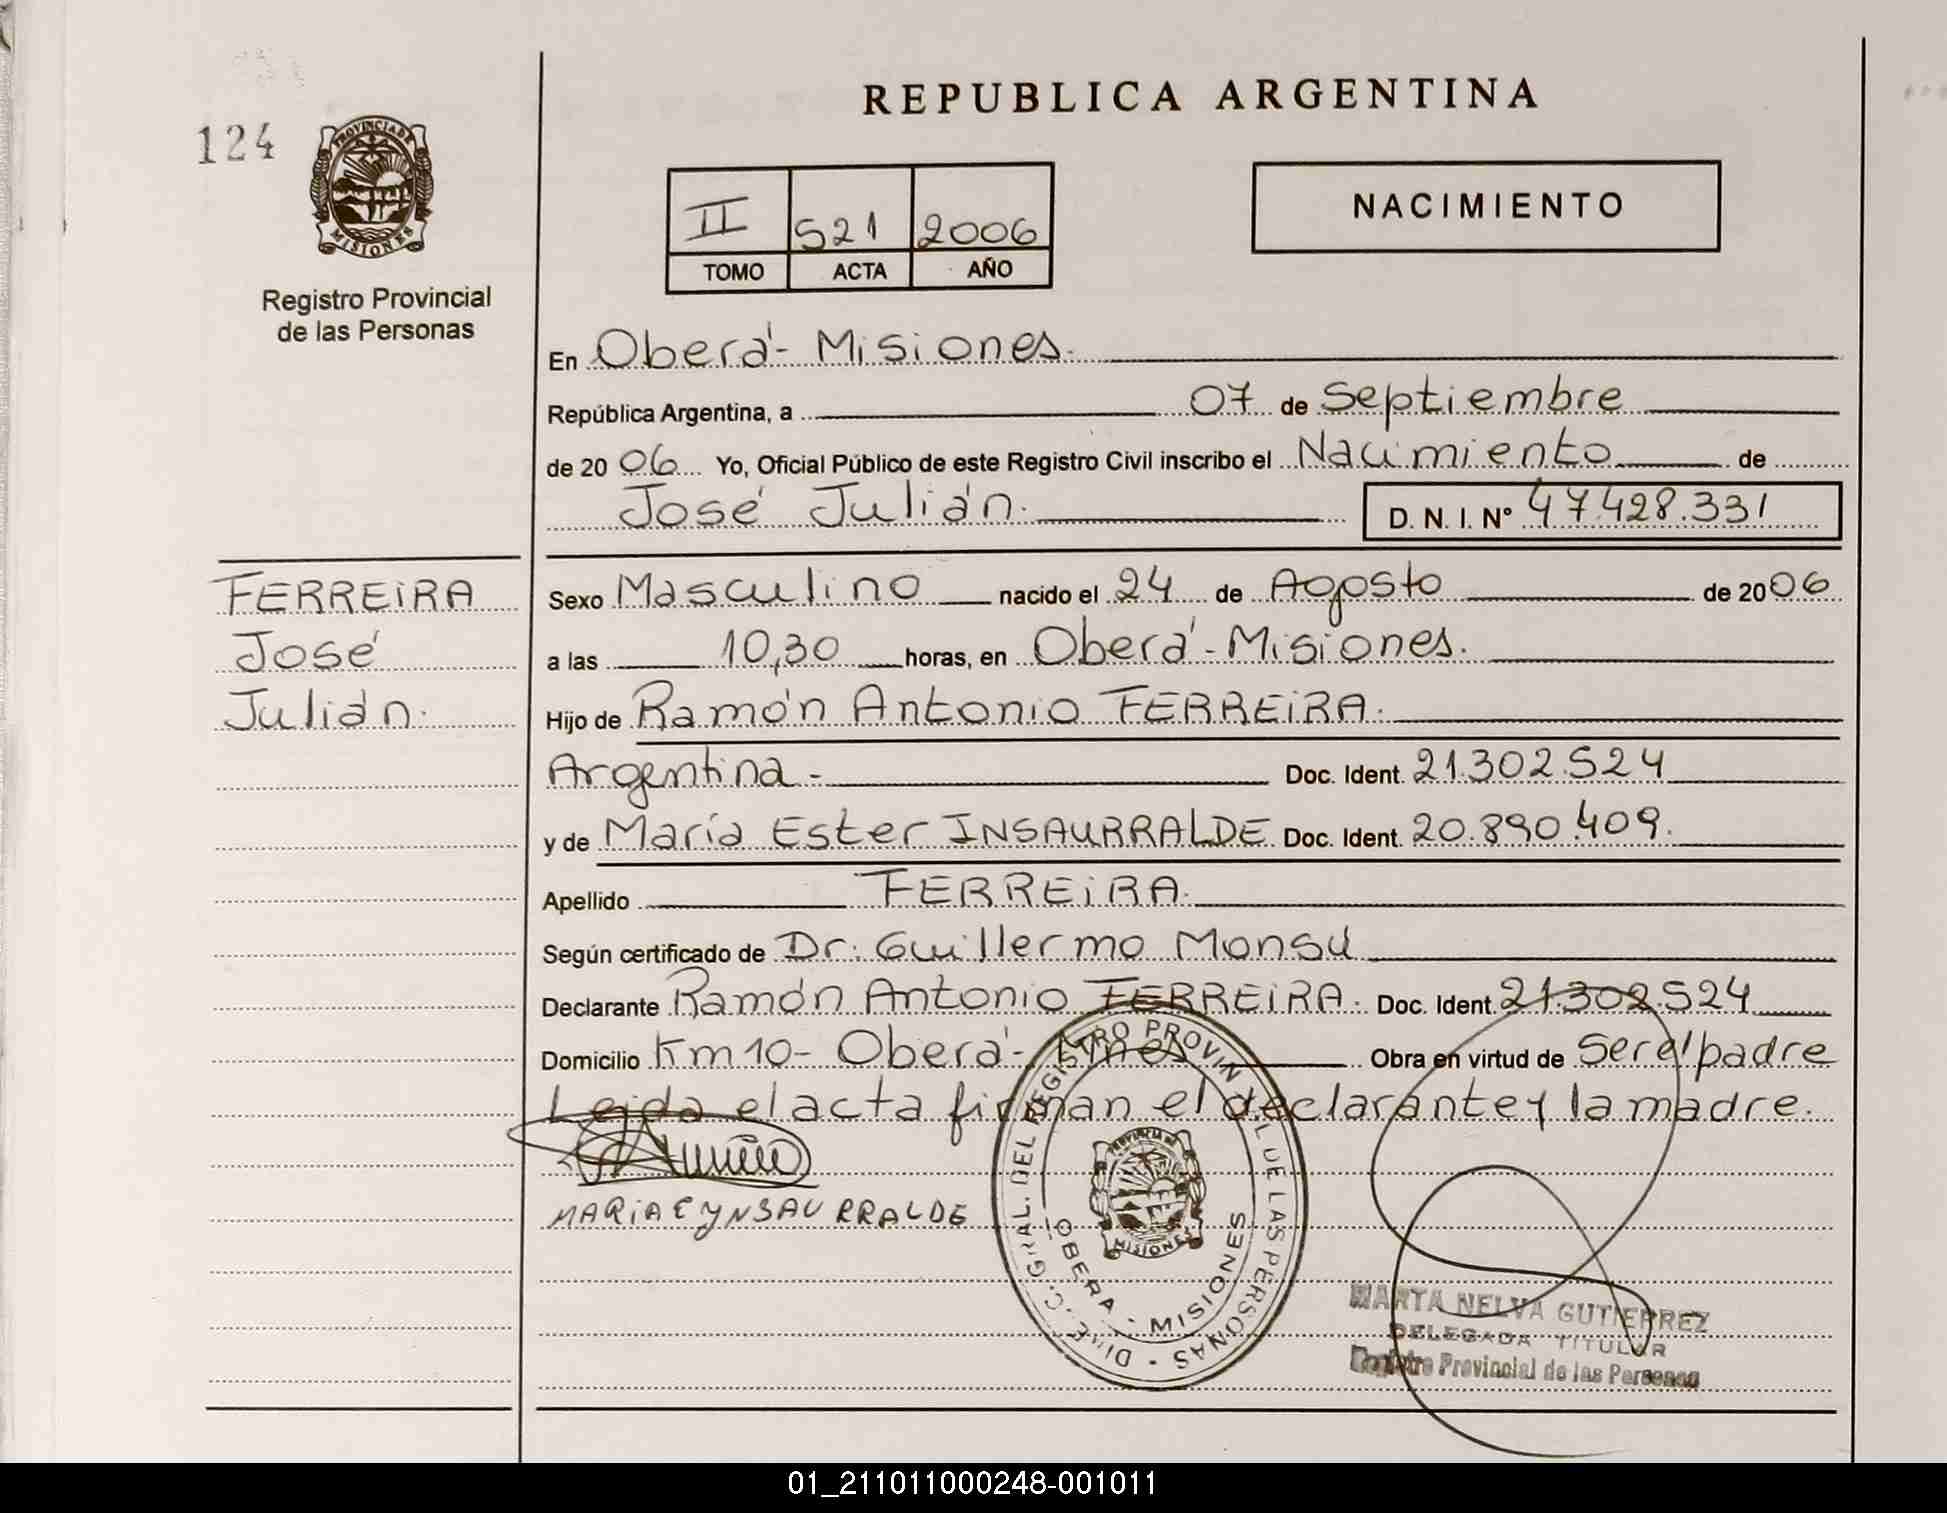 REPUBLICA ARGENTINA
124
PROVINCIA DE
MISIONES
Registro Provincial
de las Personas
II 521 2006
TOMO ACTA AÑO
NACIMIENTO
En Oberá - Misiones.
República Argentina, a 07 de Septiembre
de 2006 Yo, Oficial Público de este Registro Civil inscribo el Nacimiento de
José Julián. D. N. I. Nº 47.428.331
FERREIRA
José
Julián.
Sexo Masculino nacido el 24 de Agosto de 2006
a las 10,30 horas, en Oberá - Misiones.
Hijo de Ramón Antonio FERREIRA.
Argentina.- Doc. Ident. 21.302.524
y de María Ester INSAURRALDE Doc. Ident. 20.890.409.
Apellido FERREIRA.
Según certificado de Dr. Guillermo Monsú
Declarante Ramón Antonio FERREIRA. Doc. Ident. 21.302.524
Domicilio Km 10 - Oberá - Mnes Obra en virtud de Ser el padre
Leida el acta firman el declarante y la madre.
MARIA E YNSAURRALDE
GRAL. DEL REGISTRO PROVINCIAL DE LAS PERSONAS
PROVINCIA DE
MISIONES
OBERA - MISIONES
MARTA NELVA GUTIERREZ
DELEGADA TITULAR
Registro Provincial de las Personas
01_211011000248-001011